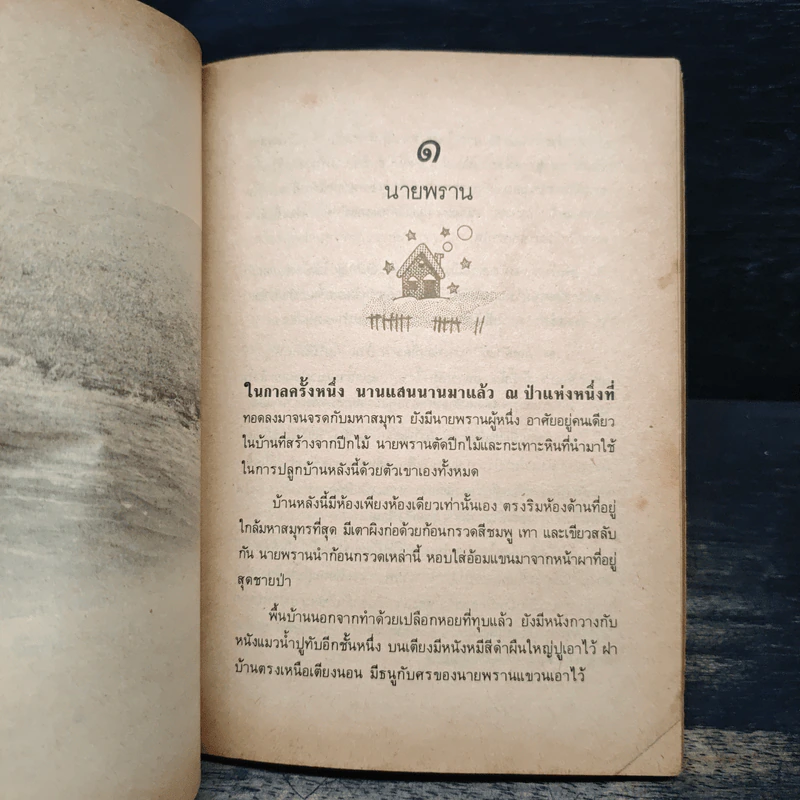 ๑
นายพราน
ในกาลครั้งหนึ่ง นานแสนนานมาแล้ว ณ ป่าแห่งหนึ่งที่
ทอดลงมาจนจรดกับมหาสมุทร ยังมีนายพรานผู้หนึ่ง อาศัยอยู่คนเดียว
ในบ้านที่สร้างจากปีกไม้ นายพรานตัดปีกไม้และกะเทาะหินที่นำมาใช้
ในการปลูกบ้านหลังนี้ด้วยตัวเขาเองทั้งหมด
บ้านหลังนี้มีห้องเพียงห้องเดียวเท่านั้นเอง ตรงริมห้องด้านที่อยู่
ใกล้มหาสมุทรที่สุด มีเตาผิงก่อด้วยก้อนกรวดสีชมพู เทา และเขียวสลับ
กัน นายพรานนำก้อนกรวดเหล่านี้ หอบใส่อ้อมแขนมาจากหน้าผาที่อยู่
สุดชายป่า
พื้นบ้านนอกจากทำด้วยเปลือกหอยที่ทุบแล้ว ยังมีหนังกวางกับ
หนังแมวน้ำปูทับอีกชั้นหนึ่ง บนเตียงมีหนังหมีสีดำผืนใหญ่ปูเอาไว้ ฝา
บ้านตรงเหนือเตียงนอน มีธนูกับศรของนายพรานแขวนเอาไว้